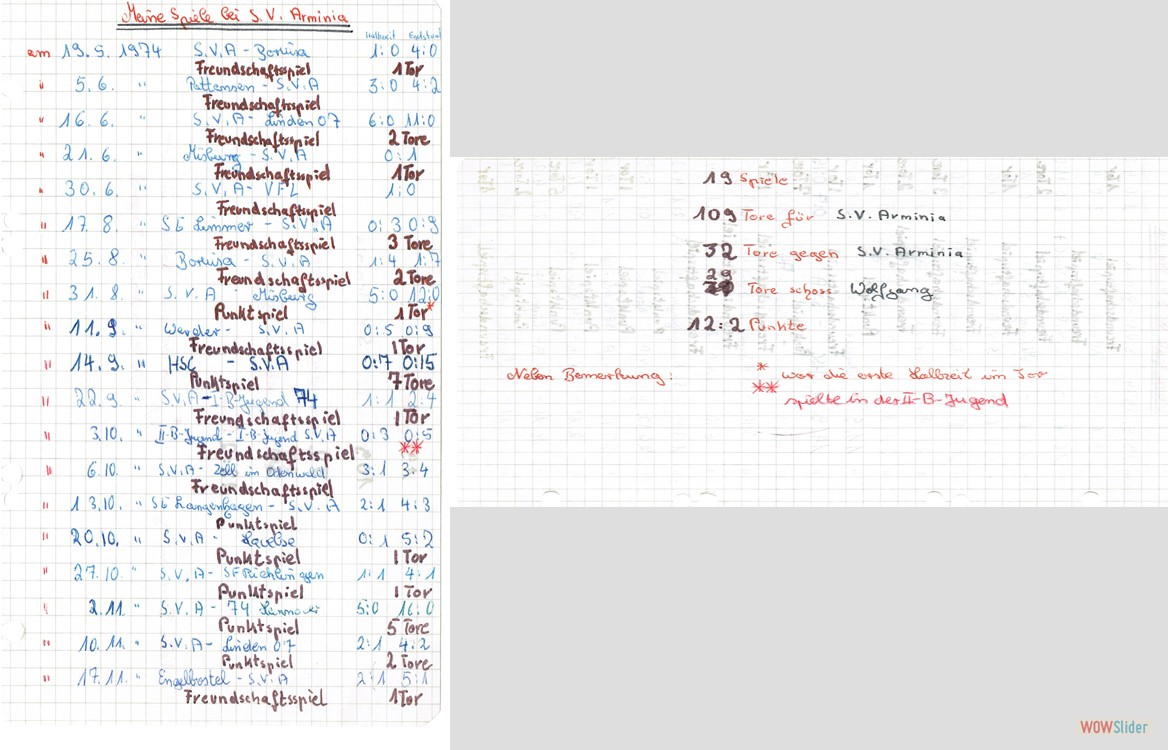 Meine Spiele bei S.V. Arminia
Halbzeit Endstand
am 19.5.1974 S.V.A - Borusia 1:0 4:0
Freundschaftsspiel 1 Tor
" 5.6. " Pattensen - S.V.A 3:0 4:2
Freundschaftsspiel
" 16.6. " S.V.A - Linden 07 6:0 11:0
Freundschaftsspiel 2 Tore
" 21.6. " Misburg - S.V.A 0:1
Freundschaftsspiel 1 Tor
" 30.6. " S.V.A - VFL 1:0
Freundschaftsspiel
" 17.8. " SG Limmer - S.V.A 0:3 0:9
Freundschaftsspiel 3 Tore
" 25.8. " Borusia - S.V.A 1:4 1:7
Freundschaftsspiel 2 Tore
" 31.8. " S.V.A Misburg 5:0 12:0
Punktspiel 1 Tor*
" 11.9. " - S.V.A 0:5 0:9
Freundschaftsspiel 1 Tor
" 14.9. " HSC - S.V.A 0:7 0:15
Punktspiel 7 Tore
" 22.9 " S.V.A - I-B-Jugend 74 1:1 2:4
Freundschaftsspiel 1 Tor
" 3.10. " II-B-Jugend - I-B-Jugend S.V.A 0:3 0:5
Freundschaftsspiel **
" 6.10. " S.V.A - Zell im Odenwald 3:1 3:4
Freundschaftsspiel
" 13.10. " SG Langenhagen - S.V.A 2:1 4:3
Punktspiel
" 20.10. " S.V.A - Havelse 0:1 5:2
Punktspiel 1 Tor
" 27.10. " S.V.A - SF Ricklingen 1:1 4:1
Punktspiel 1 Tor
" 2.11. " S.V.A - 74 Hannover 5:0 16:0
Punktspiel 5 Tore
" 10.11. " S.V.A - Linden 07 2:1 4:2
Punktspiel 2 Tore
" 17.11. " Engelbostel - S.V.A 2:1 5:1
Freundschaftsspiel 1 Tor
19 Spiele
109 Tore für S.V. Arminia
32 Tore gegen S.V. Arminia
29
Tore schoss Wolfgang
12:2 Punkte
Neben Bemerkung: * war die erste Halbzeit im Tor
** spielte in der II-B-Jugend
WOWSlider